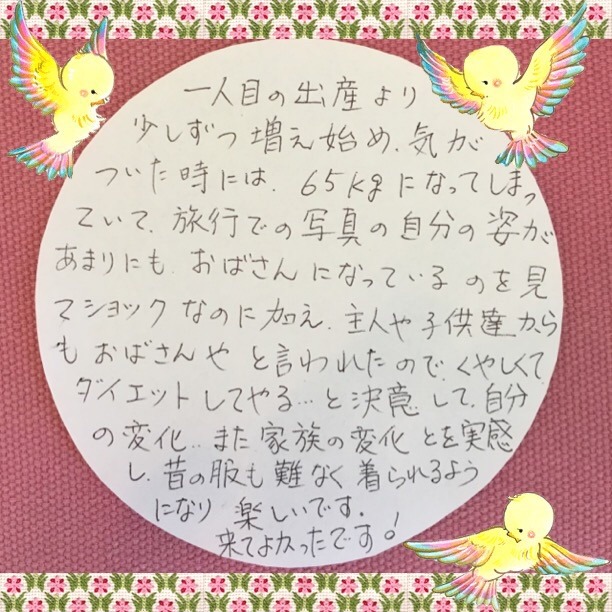 一人目の出産より
少しずつ増え始め、気が
ついた時には、65kgになってしまっ
ていて、旅行での写真の自分の姿が
あまりにも、おばさんになっているのを見
てショックなのに加え、主人や子供達から
もおばさんやと言われたので、くやしくて、
ダイエットしてやる…と決意して、自分
の変化‥また家族の変化とを実感
し、昔の服も難なく着られるよう
になり楽しいです。
来てよかったです!